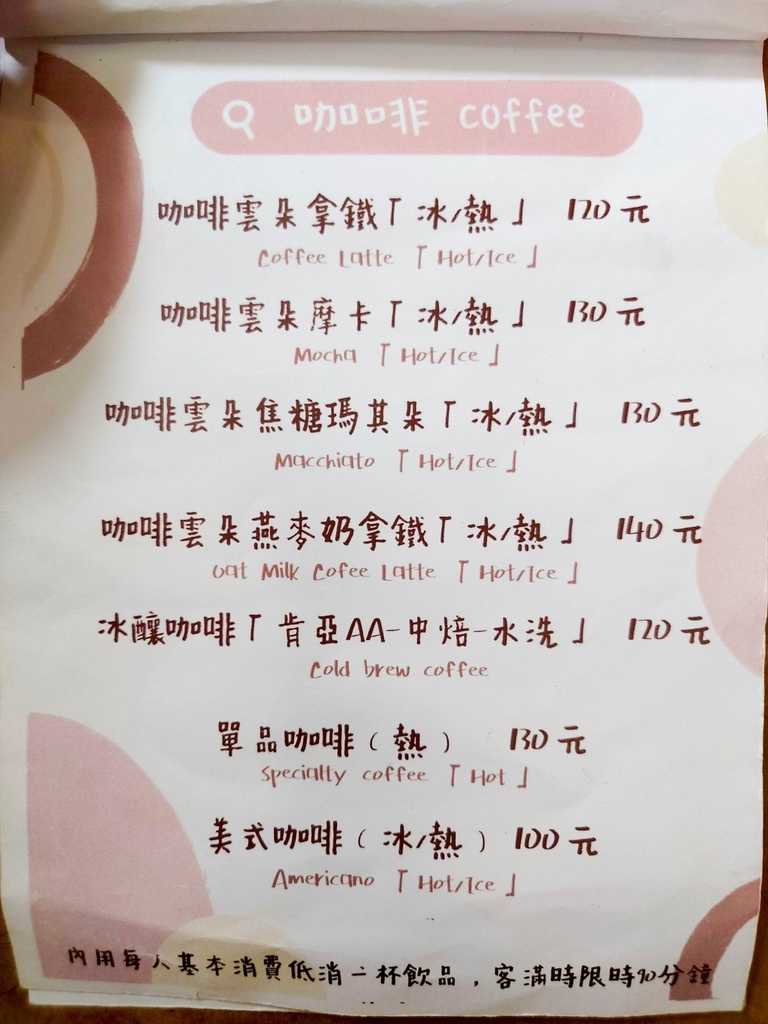 咖啡 coffee
咖啡雲朵拿鐵「冰/熱」 120元
Coffee Latte 「Hot/Ice」
咖啡雲朵摩卡「冰/熱」 130元
Mocha 「Hot/Ice」
咖啡雲朵焦糖瑪其朵「冰/熱」 130元
Macchiato 「Hot/Ice」
咖啡雲朵燕麥奶拿鐵「冰/熱」 140元
Oat Milk Cofee Latte 「Hot/Ice」
冰釀咖啡「肯亞AA-中焙-水洗」 120元
Cold brew coffee
單品咖啡(熱) 130元
Specialty coffee 「Hot」
美式咖啡(冰/熱) 100元
Americano 「Hot/Ice」
內用每人基本消費低消一杯飲品,客滿時限時90分鐘